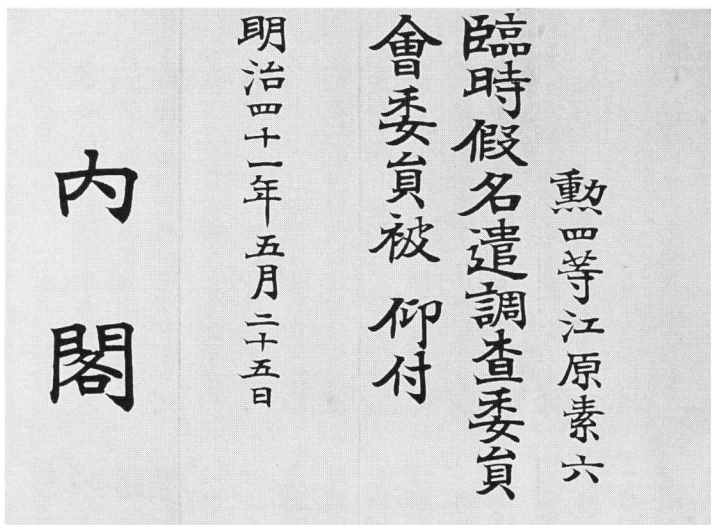 勲四等江原素六
臨時假名遣調査委員
會委員被 仰付
明治四十一年五月二十五日
内閣